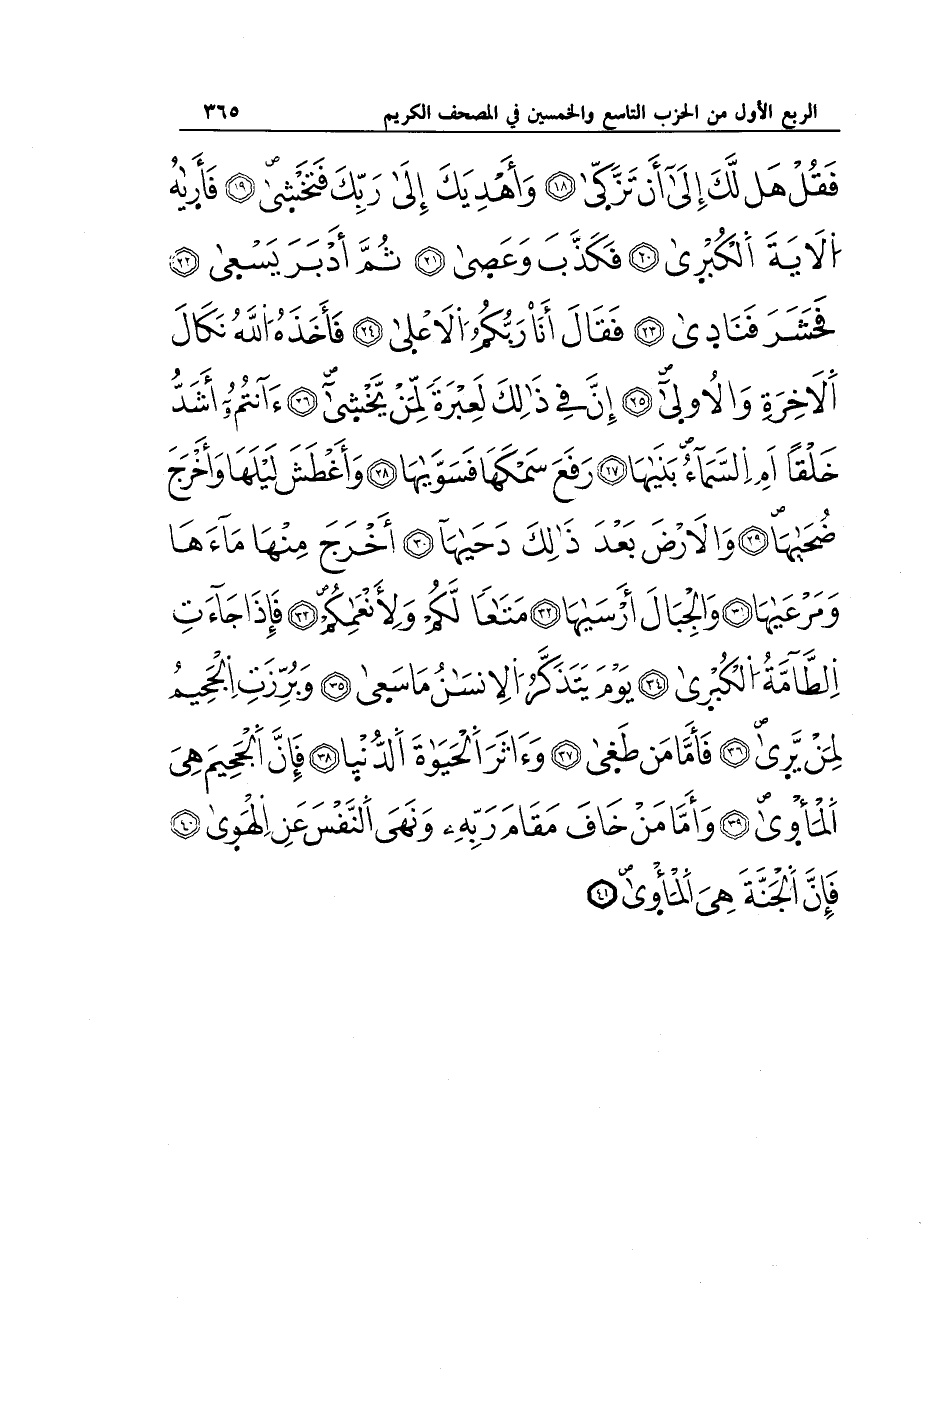 الربع الأول من الحزب التاسع والخمسين في المصحف الكريم ٣٦٥
فَقُلْ هَل لَّكَ إِلَىٰٓ أَن تَزَّكّىٰ ١٨ وَأَهْدِيَكَ إِلَىٰ رَبِّكَ فَتَخْشىٰ ١٩ فَأَرِيٰهُ
اَ۬لَايَةَ اَ۬لْكُبْرىٰ ٢٠ فَكَذَّبَ وَعَصىٰ ٢١ ثُمَّ أَدْبَرَ يَسْعىٰ ٢٢
فَحَشَرَ فَنَادىٰ ٢٣ فَقَالَ أَنَا رَبُّكُمُ اُ۬لَاعْلىٰ ٢٤ فَأَخَذَهُ اُ۬للَّهُ نَكَالَ
اَ۬لَاخِرَةِ وَالُاولىٰ ٢٥ إِنَّ فِي ذَٰلِكَ لَعِبْرَةً لِّمَنْ يَّخْشىٰ ٢٦ ءَآنتُمُۥٓ أَشَدُّ
خَلْقاً اَمِ اِ۬لسَّمَآءُ بَنَيٰهَا ١٧ رَفَعَ سَمْكَهَا فَسَوَّيٰهَا ٢٨ وَأَغْطَشَ لَيْلَهَا وَأَخْرَجَ
ضُحَيٰهَا ٢٩ وَالَارْضَ بَعْدَ ذَٰلِكَ دَحَيٰهَآ ٣٠ أَخْرَجَ مِنْهَا مَآءَهَا
وَمَرْعَيٰهَا ٣١ وَالْجِبَالَ أَرْسَيٰهَا ٣٢ مَتَٰعاً لَّكُمْ وَلِأَنْعَٰمِكُمْ ٣٣ فَإِذَا جَآءَتِ
اِ۬لطَّآمَّةُ اُ۬لْكُبْرىٰ ٣٤ يَوْمَ يَتَذَكَّرُ اُ۬لِانسَٰنُ مَا سَعىٰ ٣٥ وَبُرِّزَتِ اِ۬لْجَحِيمُ
لِمَنْ يَّرىٰ ٣٦ فَأَمَّا مَن طَغىٰ ٣٧ وَءَاثَرَ اَ۬لْحَيَوٰةَ اَ۬لدُّنْيٰا ٣٨ فَإِنَّ اَ۬لْجَحِيمَ هِيَ
اَ۬لْمَأْوىٰ ٣٩ وَأَمَّا مَنْ خَافَ مَقَامَ رَبِّهِۦ وَنَهَى اَ۬لنَّفْسَ عَنِ اِ۬لْهَوىٰ ٤٠
فَإِنَّ اَ۬لْجَنَّةَ هِيَ اَ۬لْمَأْوىٰ ٤١